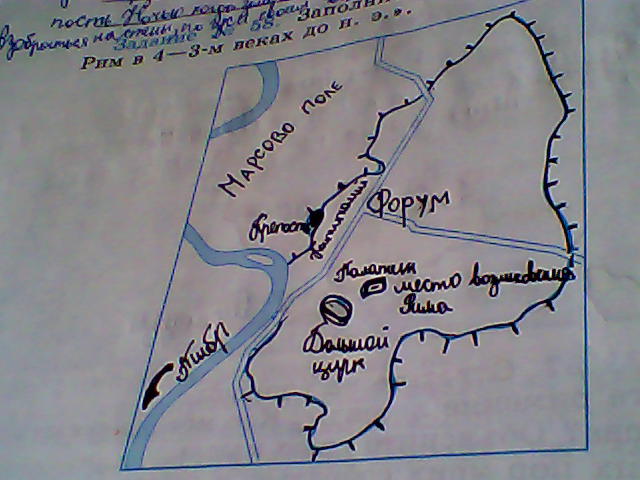 пость Ночью когда
взобраться на стены по
Задание № 55. Заполни
Рим в 4—3-м веках до н. э.
Марсово поле
Форум
Крепость
Капитолий
Палатин
место возникновения
Рима
Большой
цирк
Тибр